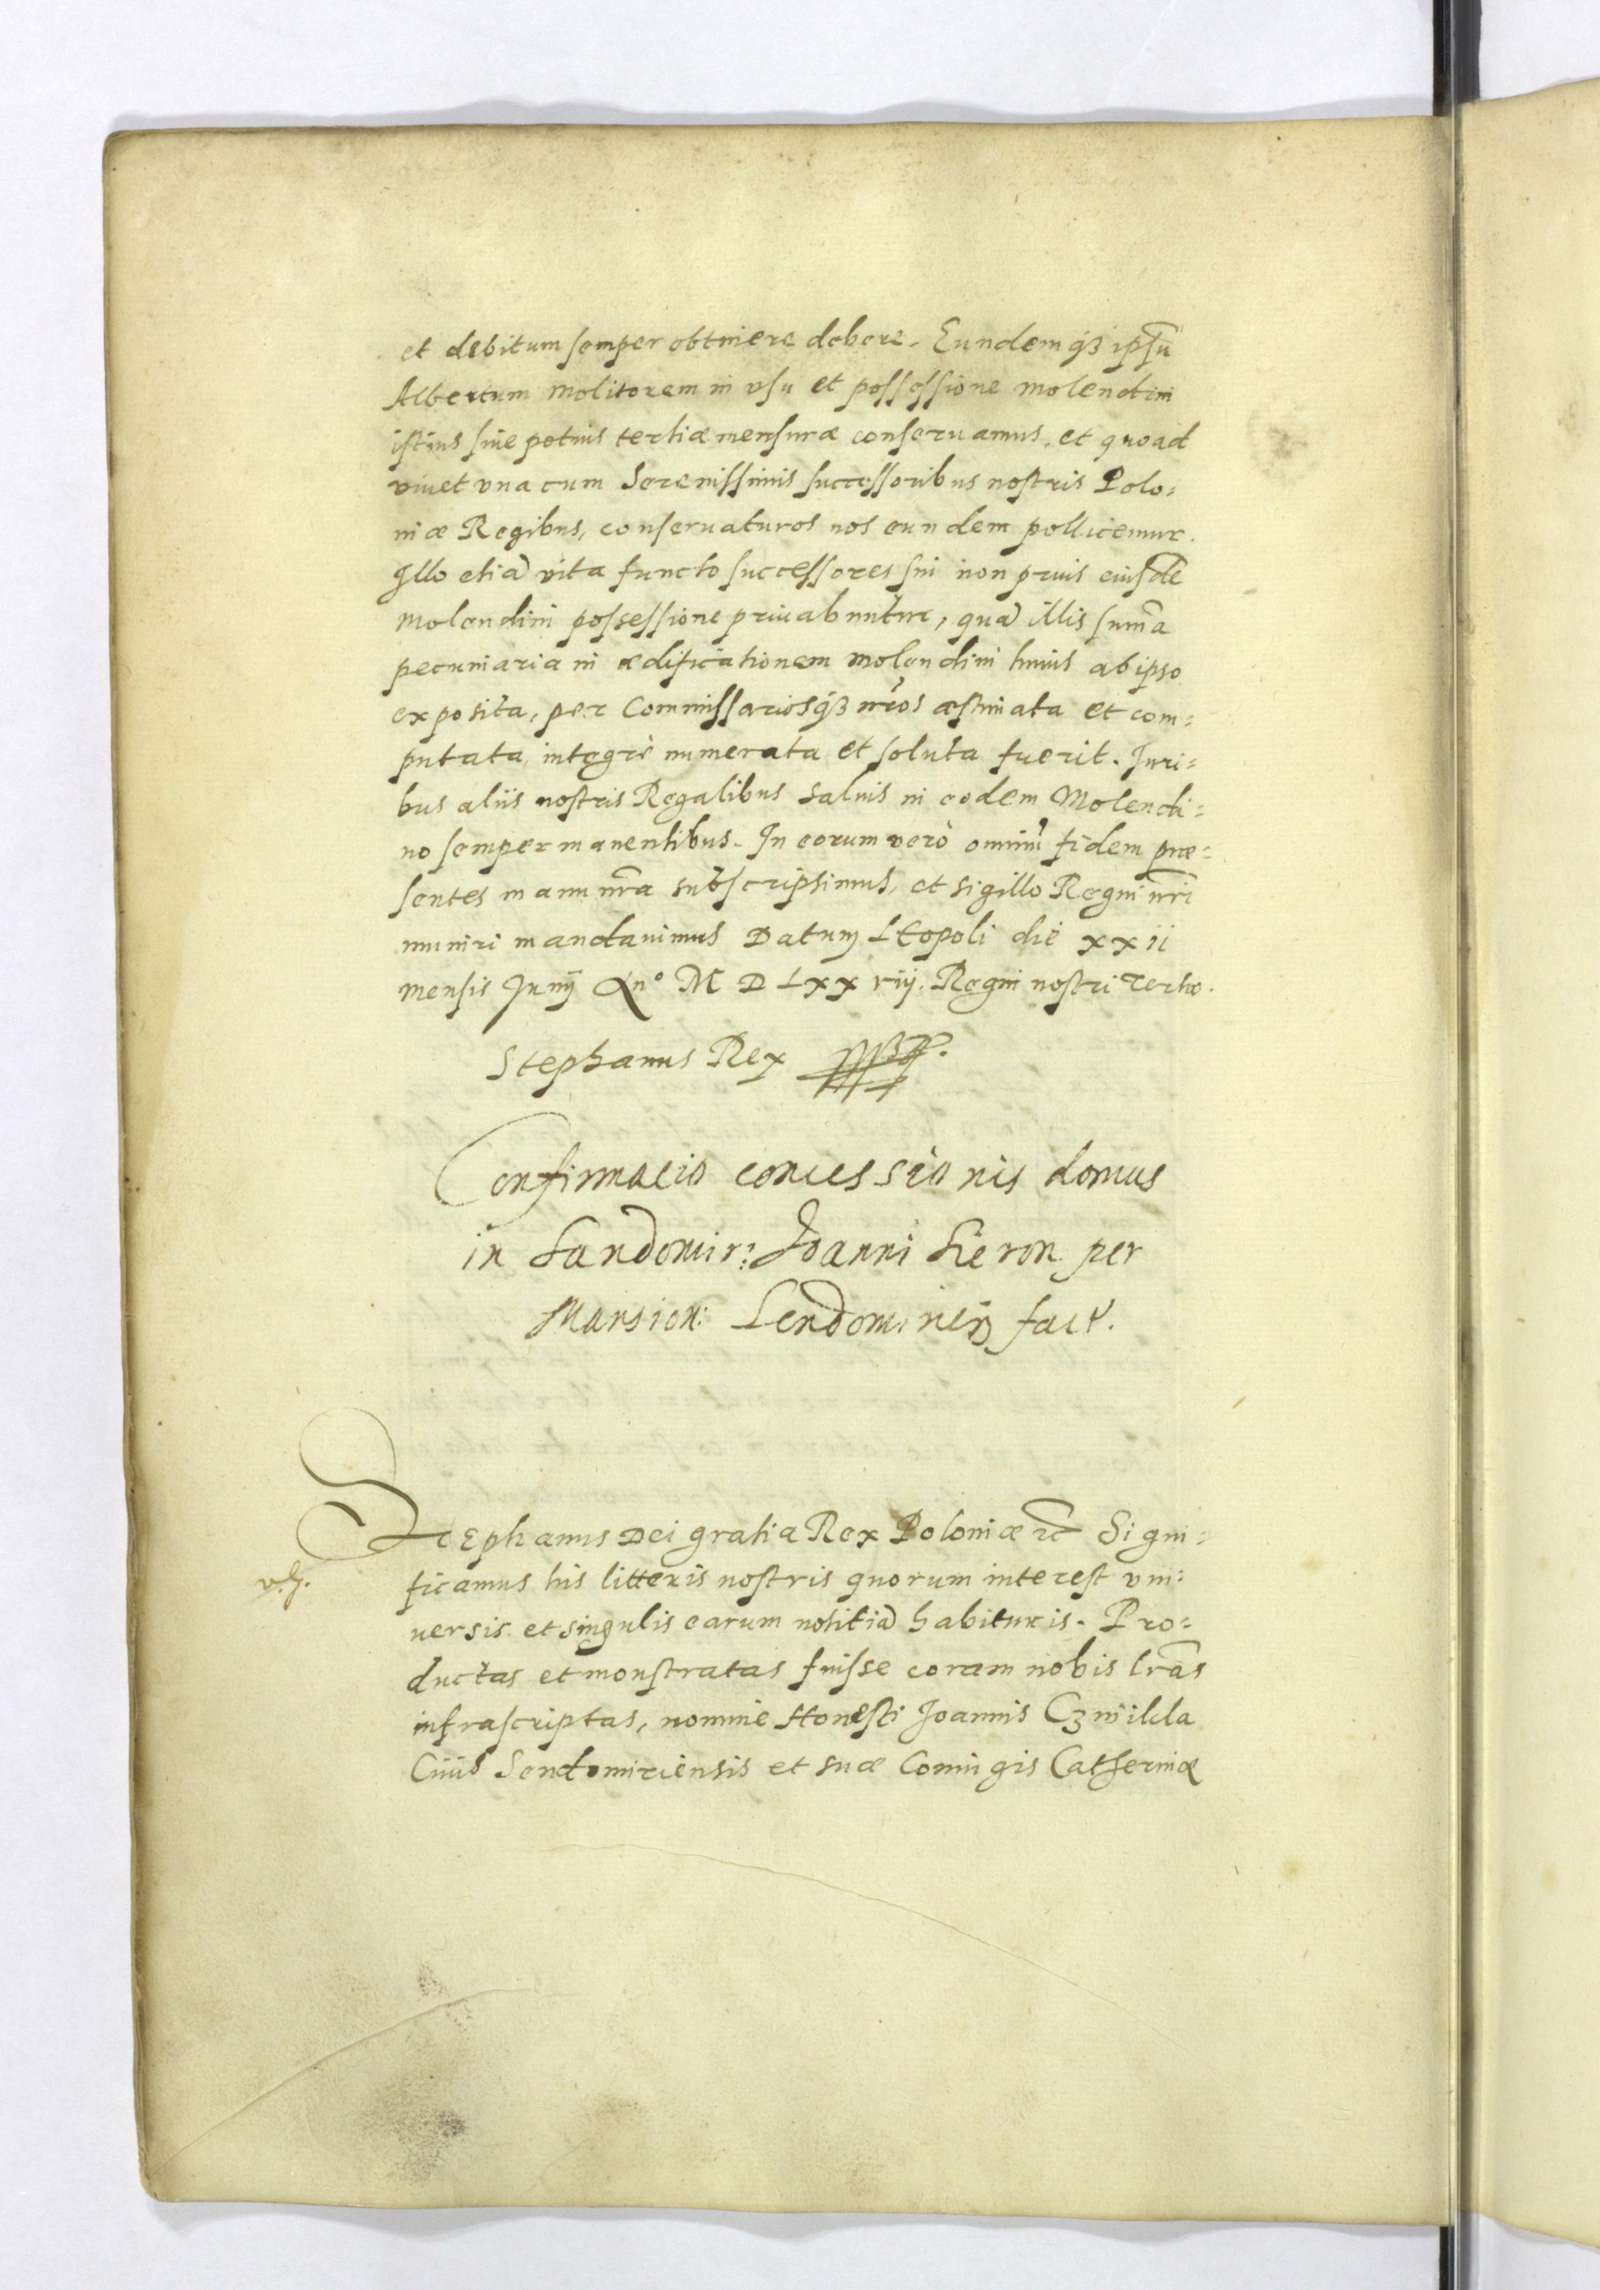 et debitum semper obtinere debere. Eundemqꝫ ipsū
Albertum Molitorem in vsu et possessione molendini
istius siue potius tertiæ mensuræ conseruamus, et quoad
viuet vna cum Serenissimis successoribus nostris Polo=
niæ Regibus, conseruaturos nos eundem pollicemur.
Illo etiā vita functo successores sui non prius eiusdē
Molendini possessione priuabuntur, quā illis sum̄a
pecuniaria in ædificationem molendini huius ab ipso
exposita, per Commissariosqꝫ nr̄os æstimata et com=
putata integrè numerata et soluta fuerit. Juri=
bus aliis nostris Regalibus saluis in eodem Molendi=
no semper manentibus. In eorum verò omniū fidem præ=
sentes manu nr̄a subscripsimus, et sigillo Regni nr̄i
muniri mandauimus Datum LEopoli die xxii
mensis Junij An° M D Lxx viij. Regni nostri Tertio.
Stephanus Rex
Confirmacio concessionis domus
in Sandomir: Joanni per
Mansion: fact.
Stephanus Dei gratia Rex Poloniæ ꝛc̄ Signi=
ficamus his litteris nostris quorum interest vni=
uersis et singulis earum notitiā habituris. Pro=
ductas et monstratas fuisse coram nobis lr̄as
infrascriptas, nomine Honesti Joannis
Ciuis Sendomiriensis et suæ Coniugis Catherinæ